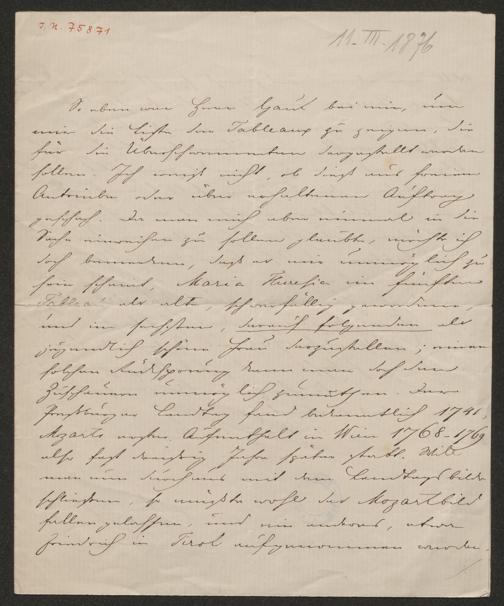 I. N. 75871
11. III. 1876
So eben war Herr Gaul bei mir, um
mir die Liste der Tableaux zu zeigen, die
für die Überschwemmten dargestellt werden
sollen. Ich weiß nicht, ob dieß aus freiem
Antriebe oder über erhaltenen Auftrag
geschah. Da man mich aber einmal in die
Sache einweihen zu sollen glaubte, möchte ich
doch bemerken, daß es mir unmöglich zu
sein scheint, Maria Theresia im fünften
Tableau als alt, schwerfällig geworden,
und im sechsten, darauf folgenden als
jugendlich schöne Frau darzustellen; einen
solchen Rücksprung kann man doch den
Zuschauern unmöglich zumuthen. Der
Preßburger Landtag fand bekanntlich 1741,
Mozarts erster Aufenthalt in Wien 1768-1769
also fast dreißig Jahre später statt. Will
man nun durchaus mit dem Landtagsbilde
schließen, so müßte wohl das Mozartbild
fallen gelassen, und ein anderes, etwa
Friedrich in Tirol aufgenommen werden.